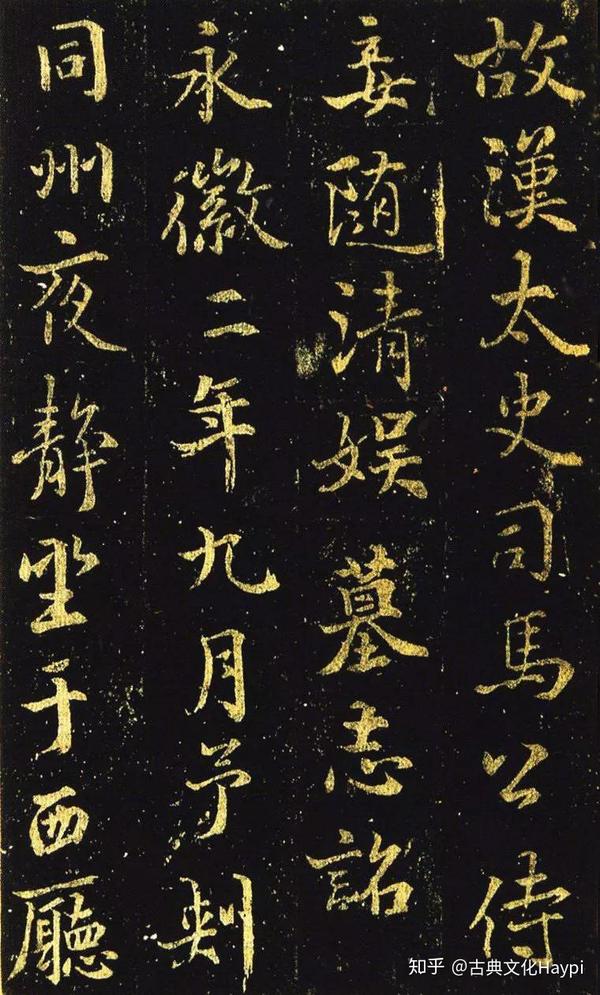 故漢太史司馬公侍
妾随清娱墓志詺
永徽二年九月予刺
同州夜静坐于西廳
知乎 @古典文化Haypi